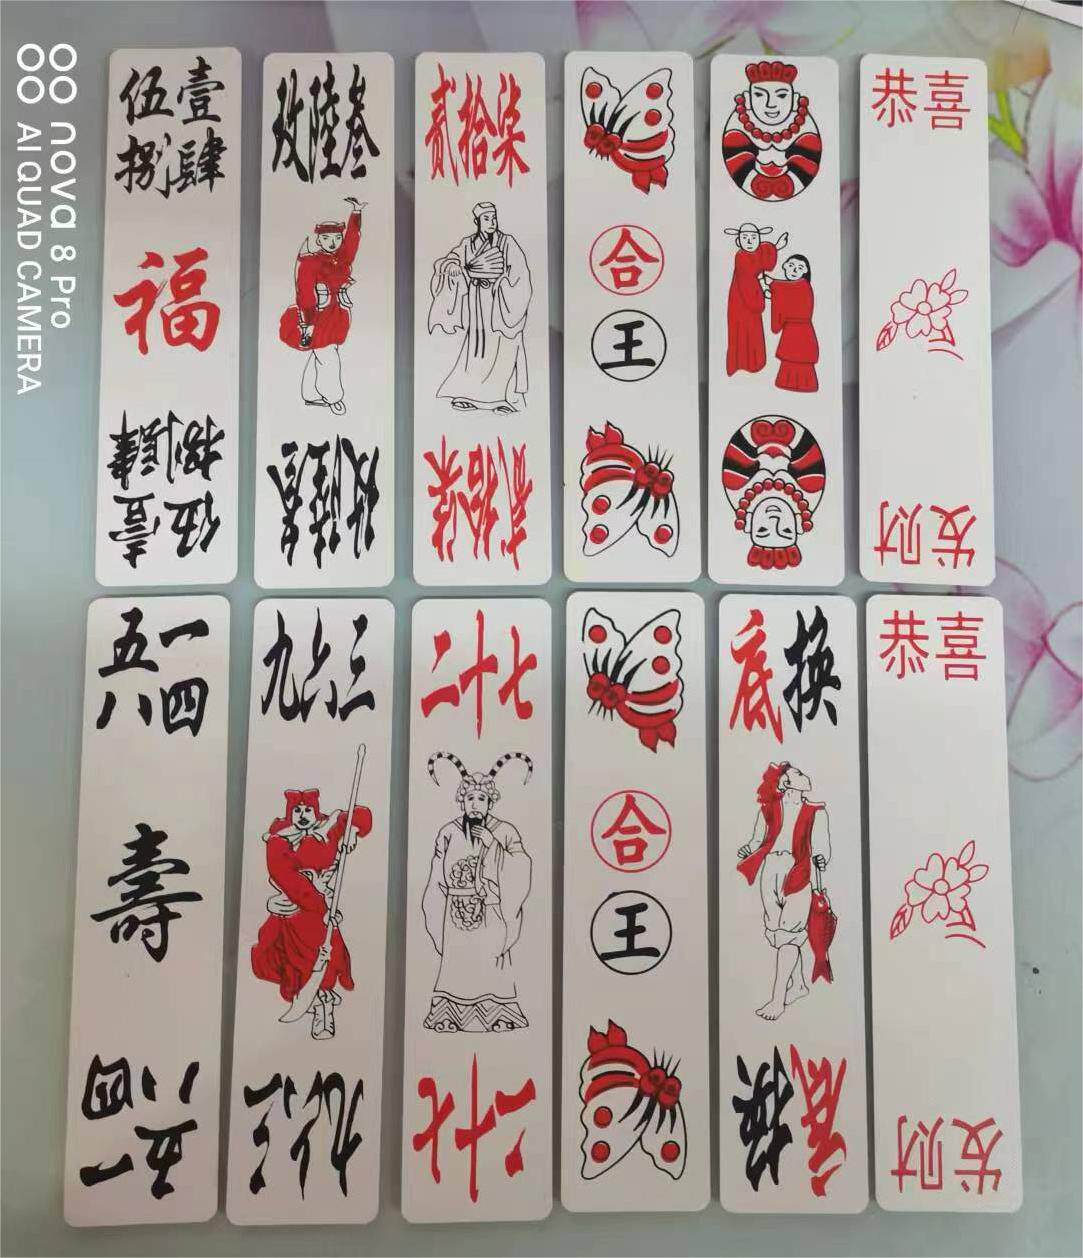 nova 8 Pro
AI QUAD CAMERA
伍壹
捌肆
福
伍壹
捌肆
玖陸叁
玖陸叁
貳拾柒
貳拾柒
合
王
恭喜
发财
五一
八四
壽
五一
八四
九六三
九六三
二十七
二十七
合
王
底换
底换
恭喜
发财